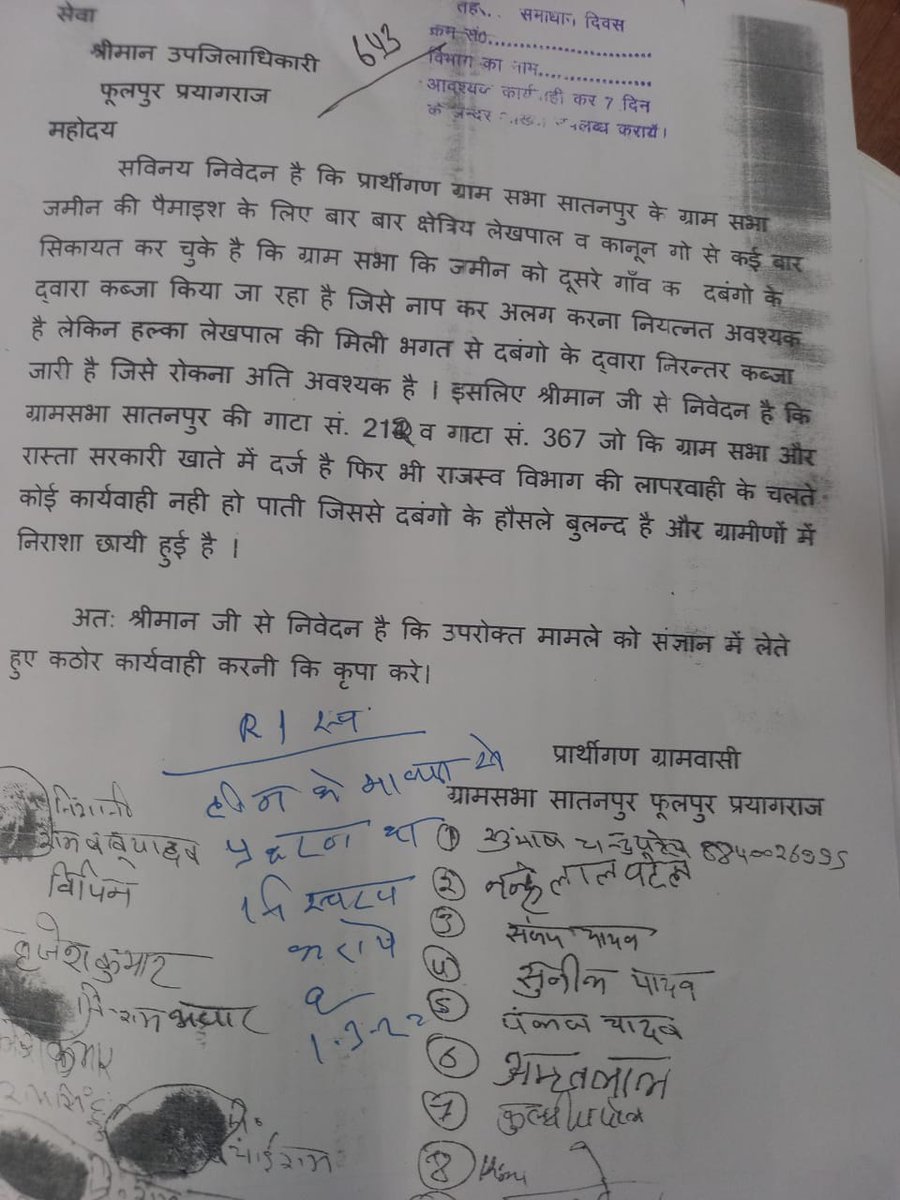 सेवा
श्रीमान उपजिलाधिकारी
फूलपुर प्रयागराज
महोदय
643
समाधान दिवस
क्रम सं0
विभाग का नाम
आवश्यक कार्यवाही कर 7 दिन
के अन्दर उपलब्ध करायें।
सविनय निवेदन है कि प्रार्थीगण ग्राम सभा सातनपुर के ग्राम सभा
जमीन की पैमाइश के लिए बार बार क्षेत्रिय लेखपाल व कानून गो से कई बार
सिकायत कर चुके है कि ग्राम सभा कि जमीन को दूसरे गाँव क दबंगो के
द्वारा कब्जा किया जा रहा है जिसे नाप कर अलग करना नियत्नत अवश्यक
है लेकिन हल्का लेखपाल की मिली भगत से दबंगो के द्वारा निरन्तर कब्जा
जारी है जिसे रोकना अति अवश्यक है । इसलिए श्रीमान जी से निवेदन है कि
ग्रामसभा सातनपुर की गाटा सं. 212 व गाटा सं. 367 जो कि ग्राम सभा और
रास्ता सरकारी खाते में दर्ज है फिर भी राजस्व विभाग की लापरवाही के चलते
कोई कार्यवाही नही हो पाती जिससे दबंगो के हौसले बुलन्द है और ग्रामीणों में
निराशा छायी हुई है ।
अतः श्रीमान जी से निवेदन है कि उपरोक्त मामले को संज्ञान में लेते
हुए कठोर कार्यवाही करनी कि कृपा करे।
प्रार्थीगण ग्रामवासी
ग्रामसभा सातनपुर फूलपुर प्रयागराज
R I
के
करायें
निशानी
विपिन
बृजेश कुमार
कुमार
① 8840026995
② नन्हे लाल पटेल
③ संजय यादव
④ सुनील यादव
⑤ पंकज यादव
⑥ अमृतलाल
⑦
⑧